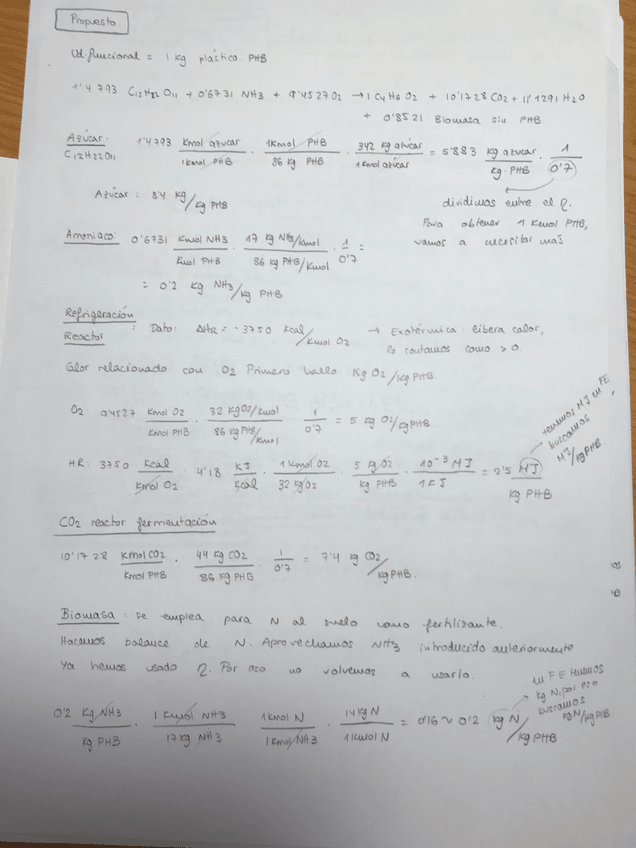 Propuesto
Ud. funcional = 1 kg plástico PHB
1'4793 C12H22O11 + 0'6731 NH3 + 9'4527O2 → 1 C4H6O2 + 10'1728 CO2 + 11'1291 H2O
+ 0'8521 Biomasa sin PHB
Azúcar: 1'4793 Kmol azucar / 1Kmol PHB · 1Kmol PHB / 86 Kg PHB · 342 Kg azúcar / 1Kmol azúcar = 5'883 Kg azucar / Kg. PHB · 1 / 0'7
C12H22O11
Azúcar: 8'4 Kg/Kg PHB
dividimos entre el η.
Para obtener 1 Kmol PHB,
vamos a necesitar más
Amoniaco: 0'6731 Kmol NH3 / Kmol PHB · 17 Kg NH3/Kmol / 86 Kg PHB/Kmol · 1 / 0'7 =
= 0'2 Kg NH3/Kg PHB
Refrigeración
Reactor: Dato: ΔHR = -3750 Kcal/Kmol O2 → Exotérmica: libera calor,
lo contamos como > 0.
Calor relacionado con O2. Primero hallo Kg O2/Kg PHB
O2: 9'4527 Kmol O2 / Kmol PHB · 32 KgO2/Kmol / 86 Kg PHB/Kmol · 1 / 0'7 = 5 Kg O2/Kg PHB
HR: 3750 Kcal / Kmol O2 · 4'18 KJ / Kcal · 1 Kmol O2 / 32 Kg O2 · 5 Kg O2 / Kg PHB · 10^-3 MJ / 1 KJ = 2'5 MJ / Kg PHB
tenemos MJ en FE,
buscamos
MJ/Kg PHB.
CO2 reactor fermentación
10'1728 Kmol CO2 / Kmol PHB · 44 Kg CO2 / 86 Kg PHB · 1 / 0'7 = 7'4 Kg CO2/Kg PHB.
Biomasa: se emplea para N al suelo como fertilizante.
Hacemos balance de N. Aprovechamos NH3 introducido anteriormente
Ya hemos usado η. Por eso no volvemos a usarlo.
0'2 Kg NH3 / Kg PHB · 1 Kmol NH3 / 17 Kg NH3 · 1Kmol N / 1Kmol NH3 · 14Kg N / 1Kmol N = 0'16 ~ 0'2 Kg N/Kg PHB
en FE tenemos
Kg N, por eso
buscamos
KgN/Kg PHB